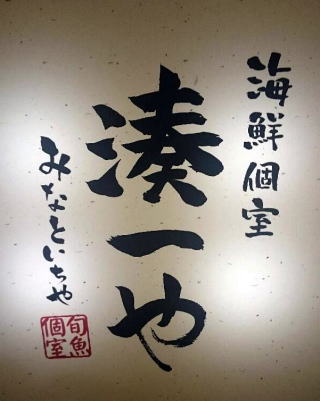 海鮮個室
湊一や
みなといちや
旬魚
個室